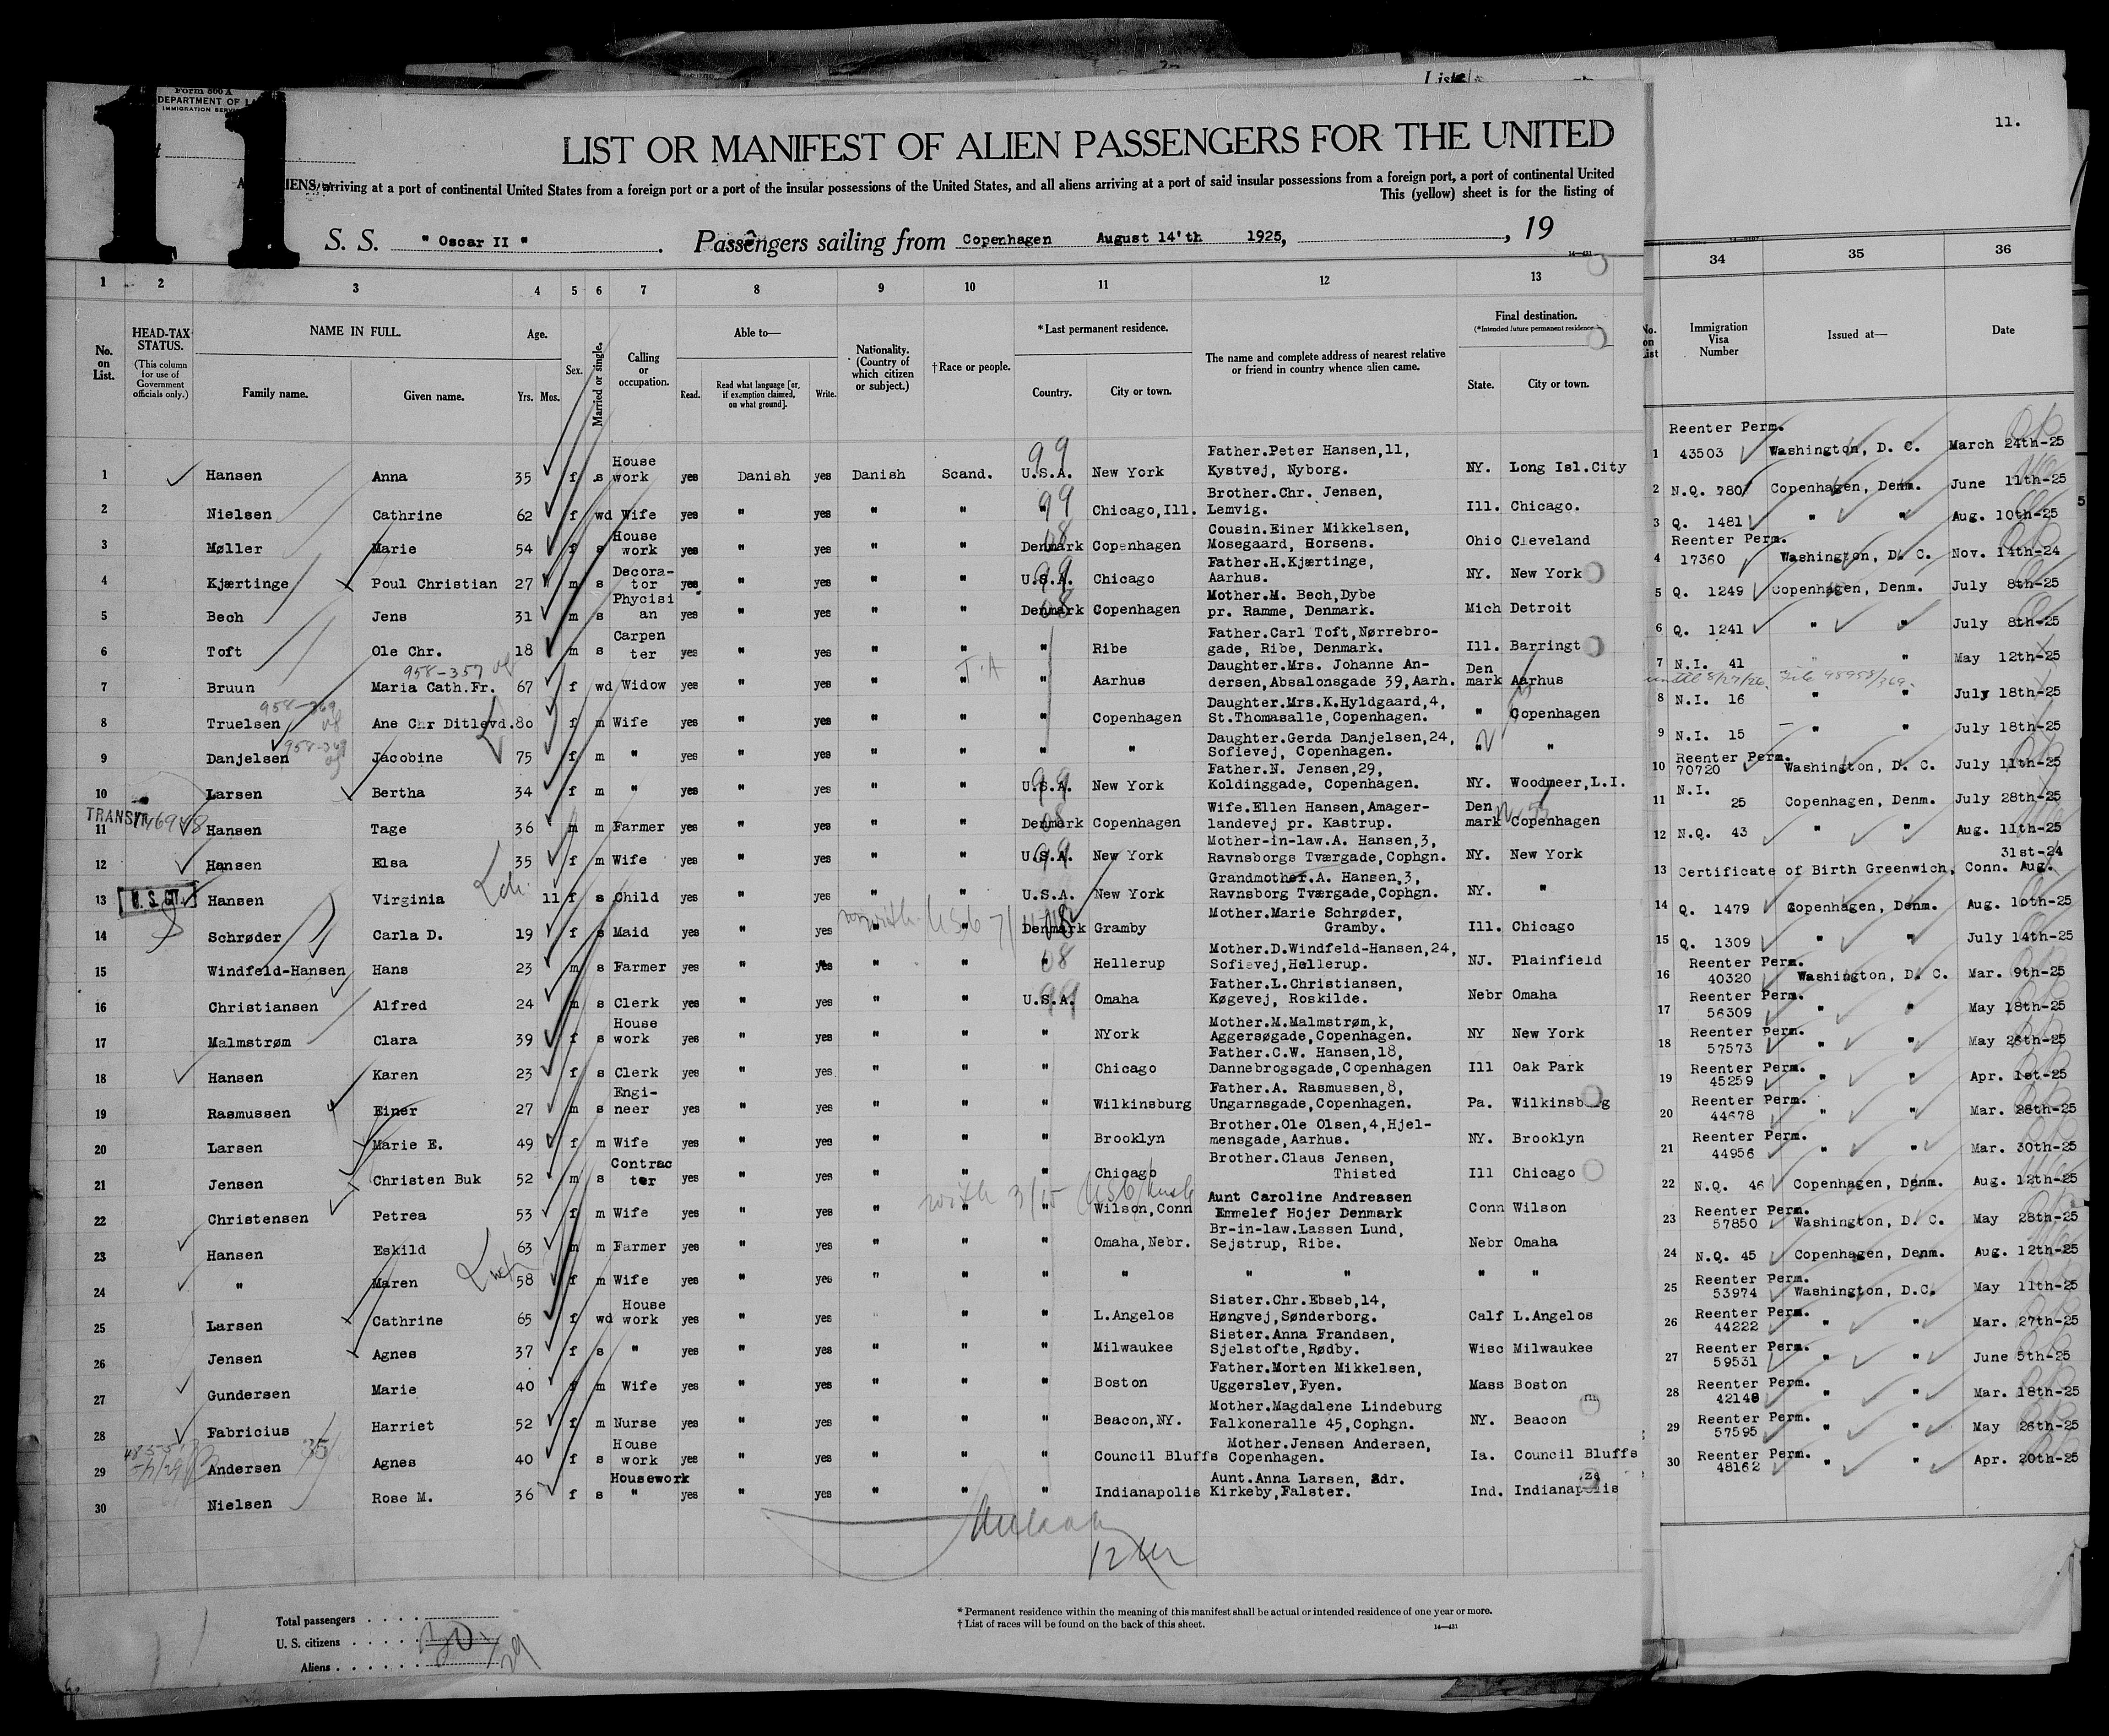 11
Form 500 A
DEPARTMENT OF LA
IMMIGRATION SERV
List
11.
LIST OR MANIFEST OF ALIEN PASSENGERS FOR THE UNITED
ALIENS arriving at a port of continental United States from a foreign port or a port of the insular possessions of the United States, and all aliens arriving at a port of said insular possessions from a foreign port, a port of continental United
This (yellow) sheet is for the listing of
S. S. " Oscar II " . Passengers sailing from Copenhagen August 14'th 1925, , 19
14—431
1 2 3 4 5 6 7 8 9 10 11 12 13 34 35 36
No. on List.
HEAD-TAX STATUS.
(This column for use of Government officials only.)
NAME IN FULL.
Family name. Given name.
Age.
Yrs. Mos.
Sex.
Married or single.
Calling or occupation.
Able to—
Read. Read what language [or, if exemption claimed, on what ground]. Write.
Nationality. (Country of which citizen or subject.)
†Race or people.
*Last permanent residence.
Country. City or town.
The name and complete address of nearest relative or friend in country whence alien came.
Final destination.
(*Intended future permanent residence.)
State. City or town.
No. on List
Immigration Visa Number
Issued at—
Date
1 Hansen Anna 35 f s House work yes Danish yes Danish Scand. U.S.A. 99 New York Father.Peter Hansen,11, Kystvej, Nyborg. NY. Long Isl.City
2 Nielsen Cathrine 62 f wd Wife yes " yes " " " 99 Chicago,Ill. Brother.Chr. Jensen, Lemvig. Ill. Chicago.
3 Møller Marie 54 f s House work yes " yes " " Denmark 08 Copenhagen Cousin.Einer Mikkelsen, Mosegaard, Horsens. Ohio Cleveland
4 Kjærtinge Poul Christian 27 m s Decora- tor yes " yes " " U.S.A. 99 Chicago Father.H.Kjærtinge, Aarhus. NY. New York
5 Bech Jens 31 m s Phycisi an yes " yes " " Denmark 08 Copenhagen Mother.M. Bech,Dybe pr. Ramme, Denmark. Mich Detroit
6 Toft Ole Chr. 18 m s Carpen ter yes " yes " " " Ribe Father.Carl Toft,Nørrebro- gade, Ribe, Denmark. Ill. Barringt
958-357
7 Bruun Maria Cath.Fr. 67 f wd Widow yes " yes " " T.A " Aarhus Daughter.Mrs. Johanne An- dersen,Absalonsgade 39,Aarh. Den mark Aarhus
958-369
8 Truelsen Ane Chr Ditlevd. 80 f m Wife yes " yes " " " Copenhagen Daughter.Mrs.K.Hyldgaard,4, St.Thomasalle,Copenhagen. " Copenhagen
958-369
9 Danjelsen Jacobine 75 f m " yes " yes " " " " Daughter.Gerda Danjelsen,24, Sofievej, Copenhagen. " "
10 Larsen Bertha 34 f m " yes " yes " " U.S.A. 99 New York Father.N. Jensen,29, Koldinggade, Copenhagen. NY. Woodmeer,L.I.
TRANSIT
11 Hansen Tage 36 m m Farmer yes " yes " " Denmark 08 Copenhagen Wife.Ellen Hansen,Amager- landevej pr. Kastrup. Den mark Copenhagen
12 Hansen Elsa 35 f m Wife yes " yes " " U.S.A. 99 New York Mother-in-law.A. Hansen,3, Ravnsborgs Tværgade,Cophgn. NY. New York
13 U.S. CIT. Hansen Virginia 11 f s Child yes " yes " " U.S.A. New York Grandmother.A. Hansen,3, Ravnsborg Tværgade,Cophgn. NY. "
14 Schrøder Carla D. 19 f s Maid yes " yes " " Denmark 08 Gramby Mother.Marie Schrøder, Gramby. Ill. Chicago
15 Windfeld-Hansen Hans 23 m s Farmer yes " yes " " " 08 Hellerup Mother.D.Windfeld-Hansen,24, Sofievej,Hellerup. NJ. Plainfield
16 Christiansen Alfred 24 m s Clerk yes " yes " " U.S.A. 99 Omaha Father.L.Christiansen, Køgevej, Roskilde. Nebr Omaha
17 Malmstrøm Clara 39 f s House work yes " yes " " " NYork Mother.M.Malmstrøm,k, Aggersøgade,Copenhagen. NY New York
18 Hansen Karen 23 f s Clerk yes " yes " " " Chicago Father.C.W. Hansen,18, Dannebrogsgade,Copenhagen Ill Oak Park
19 Rasmussen Einer 27 m s Engi- neer yes " yes " " " Wilkinsburg Father.A. Rasmussen,8, Ungarnsgade,Copenhagen. Pa. Wilkinsburg
20 Larsen Marie E. 49 f m Wife yes " yes " " " Brooklyn Brother.Ole Olsen,4,Hjel- mensgade,Aarhus. NY. Brooklyn
21 Jensen Christen Buk 52 m s Contrac tor yes " yes " " " Chicago Brother.Claus Jensen, Thisted Ill Chicago
22 Christensen Petrea 53 f m Wife yes " yes " " " Wilson,Conn Aunt Caroline Andreasen Emmelef Hojer Denmark Conn Wilson
23 Hansen Eskild 63 m m Farmer yes " yes " " " Omaha,Nebr. Br-in-law.Lassen Lund, Sejstrup, Ribe. Nebr Omaha
24 " Maren 58 f m Wife yes " yes " " " " " " " "
25 Larsen Cathrine 65 f wd House work yes " yes " " " L.Angelos Sister.Chr.Ebseb,14, Høngvej,Sønderborg. Calf L.Angelos
26 Jensen Agnes 37 f s " yes " yes " " " Milwaukee Sister.Anna Frandsen, Sjelstofte,Rødby. Wisc Milwaukee
27 Gundersen Marie 40 f m Wife yes " yes " " " Boston Father.Morten Mikkelsen, Uggerslev,Fyen. Mass Boston
28 Fabricius Harriet 52 f m Nurse yes " yes " " " Beacon,NY. Mother.Magdalene Lindeburg Falkoneralle 45,Cophgn. NY. Beacon
29 Andersen Agnes 40 f s House work yes " yes " " " Council Bluffs Mother.Jensen Andersen, Copenhagen. Ia. Council Bluffs
30 Nielsen Rose M. 36 f s Housework " yes " yes " " " Indianapolis Aunt.Anna Larsen, Sdr. Kirkeby,Falster. Ind. Indianapolis
1 Reenter Perm. 43503 Washington, D. C. March 24th-25
2 N.Q. 780 Copenhagen, Denm. June 11th-25
3 Q. 1481 " " Aug. 10th-25
4 Reenter Perm. 17360 Washington, D. C. Nov. 14th-24
5 Q. 1249 Copenhagen, Denm. July 8th-25
6 Q. 1241 " " July 8th-25
7 N.I. 41 " " May 12th-25
until 8/27/26. File 98958/369.
8 N.I. 16 July 18th-25
9 N.I. 15 " " July 18th-25
10 Reenter Perm. 70720 Washington, D. C. July 11th-25
11 N.I. 25 Copenhagen, Denm. July 28th-25
12 N.Q. 43 " " Aug. 11th-25
13 Certificate of Birth Greenwich, Conn. Aug. 31st-24
14 Q. 1479 Copenhagen, Denm. Aug. 10th-25
15 Q. 1309 " " July 14th-25
16 Reenter Perm. 40320 Washington, D. C. Mar. 9th-25
17 Reenter Perm. 56309 " " May 18th-25
18 Reenter Perm. 57573 " " May 26th-25
19 Reenter Perm. 45259 " " Apr. 1st-25
20 Reenter Perm. 44678 " " Mar. 28th-25
21 Reenter Perm. 44956 " " Mar. 30th-25
22 N.Q. 46 Copenhagen, Denm. Aug. 12th-25
23 Reenter Perm. 57850 Washington, D. C. May 28th-25
24 N.Q. 45 Copenhagen, Denm. Aug. 12th-25
25 Reenter Perm. 53974 Washington, D.C. May 11th-25
26 Reenter Perm. 44222 " " Mar. 27th-25
27 Reenter Perm. 59531 " " June 5th-25
28 Reenter Perm. 42148 " " Mar. 18th-25
29 Reenter Perm. 57595 " " May 26th-25
30 Reenter Perm. 48162 " " Apr. 20th-25
Total passengers
U. S. citizens
Aliens
29
*Permanent residence within the meaning of this manifest shall be actual or intended residence of one year or more.
†List of races will be found on the back of this sheet.
14—431